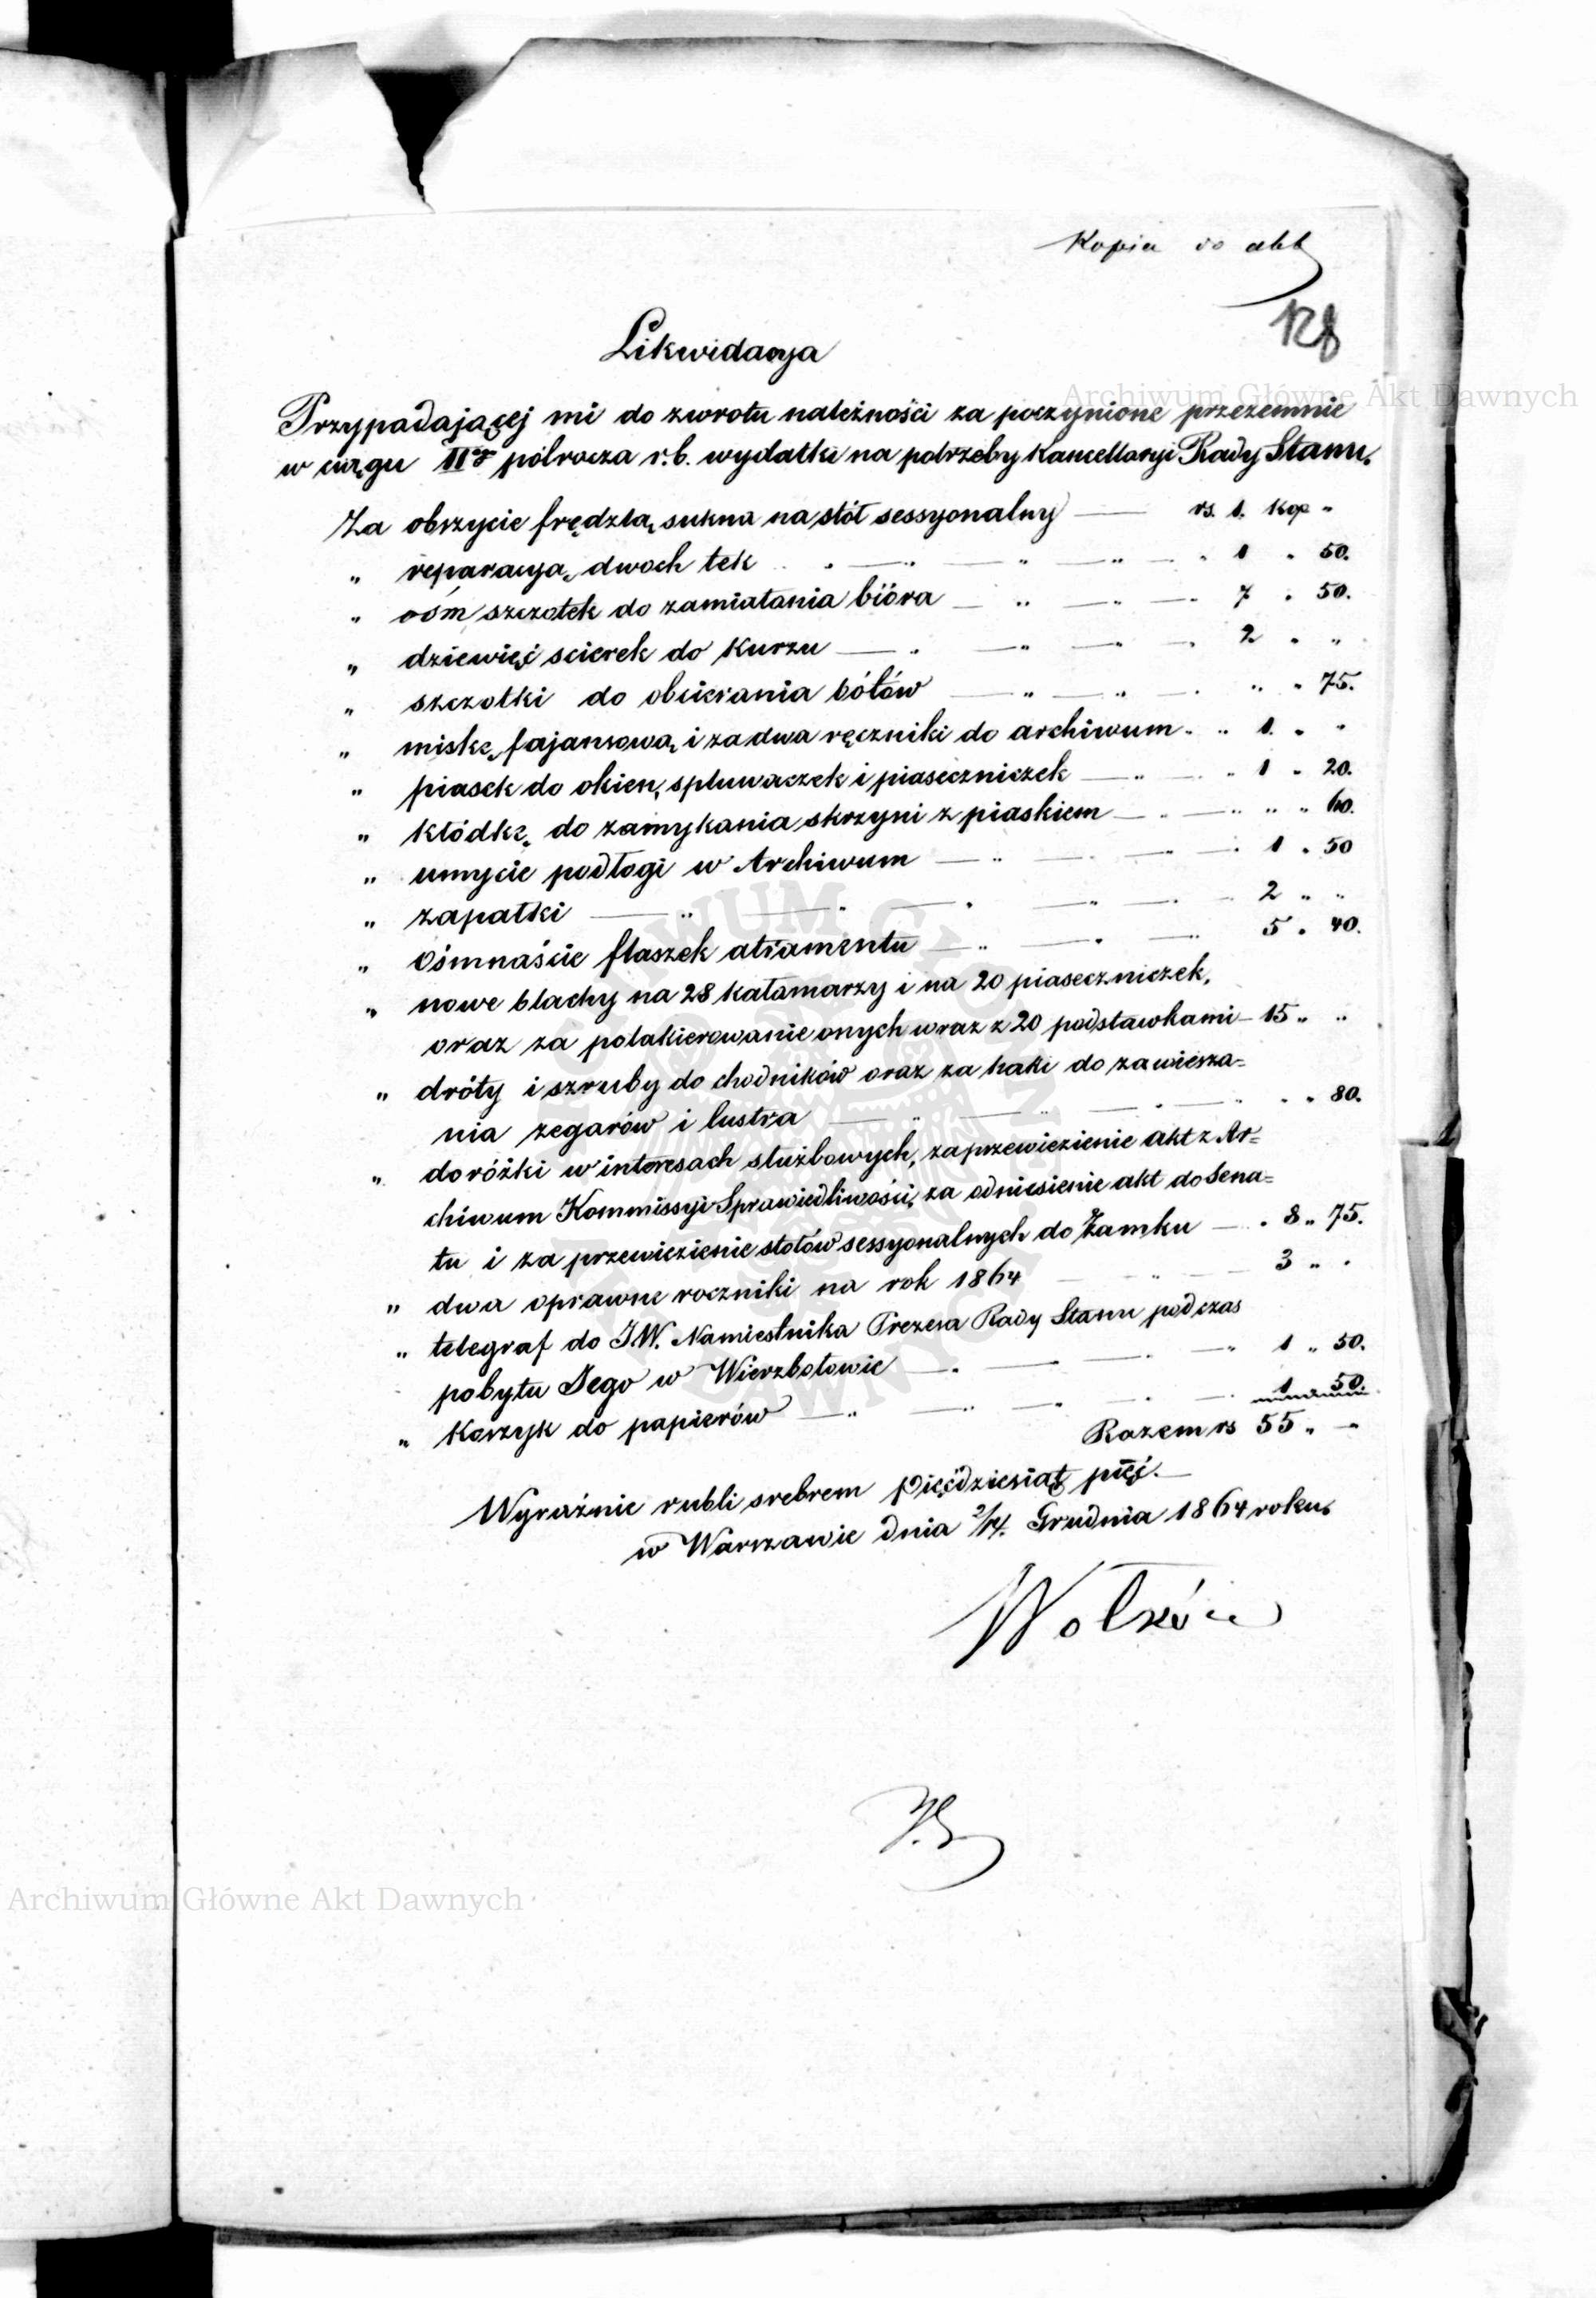 Kopia do akt
128
Likwidacya
Przypadającej mi do zwrotu należności za poczynione przezemnie
w ciągu IIgo półrocza r.b. wydatki na potrzeby Kancellaryi Rady Stanu.
Za obszycie frędzlą sukna na stół sessyonalny — rs. 1. kop "
" reparacyą dwóch tek " — " — " — " 1 " 50.
" ośm szczotek do zamiatania bióra — " — " — 7 " 50.
" dziewięć scierek do kurzu — " — " — " — " 2 " "
" szczotki do obcierania bótów — " — " — " " " 75.
" miskę fajansową i za dwa ręczniki do archiwum - " 1. " "
" piasek do okien, spluwaczek i piaseczniczek — " — " 1 " 20.
" kłódkę do zamykania skrzyni z piaskiem — " — " " " 60.
" umycie podłogi w Archiwum — " — " — " — 1 " 50
" zapałki — " — " — " — " — " — 2 " "
" ośmnaście flaszek atramentu — " — " — " 5 " 40.
" nowe blachy na 28 kałamarzy i na 20 piaseczniczek,
oraz za polakierowanie onych wraz z 20 podstawkami — 15 " "
" dróty i szruby do chodników oraz za haki do zawiesza=
nia zegarów i lustra — " — " — " — " " 80.
" doróżki w interesach służbowych, za przewiezienie akt z Ar=
chiwum Kommissyi Sprawiedliwości, za odniesienie akt do Sena=
tu i za przewiezienie stołów sessyonalnych do Zamku — " 8 " 75.
" dwa oprawne roczniki na rok 1864 — " — 3 " "
" telegraf do J.W. Namiestnika Prezesa Rady Stanu podczas
pobytu Jego w Wierzbołowie — " — " — " 1 " 50.
" koszyk do papierów — " — " — " — " — 1 50.
Razem rs 55 " —
Wyraźnie rubli srebrem pięćdziesiąt pięć. —
w Warszawie dnia 2/14. Grudnia 1864 roku.
Archiwum Główne Akt Dawnych
Archiwum Główne Akt Dawnych